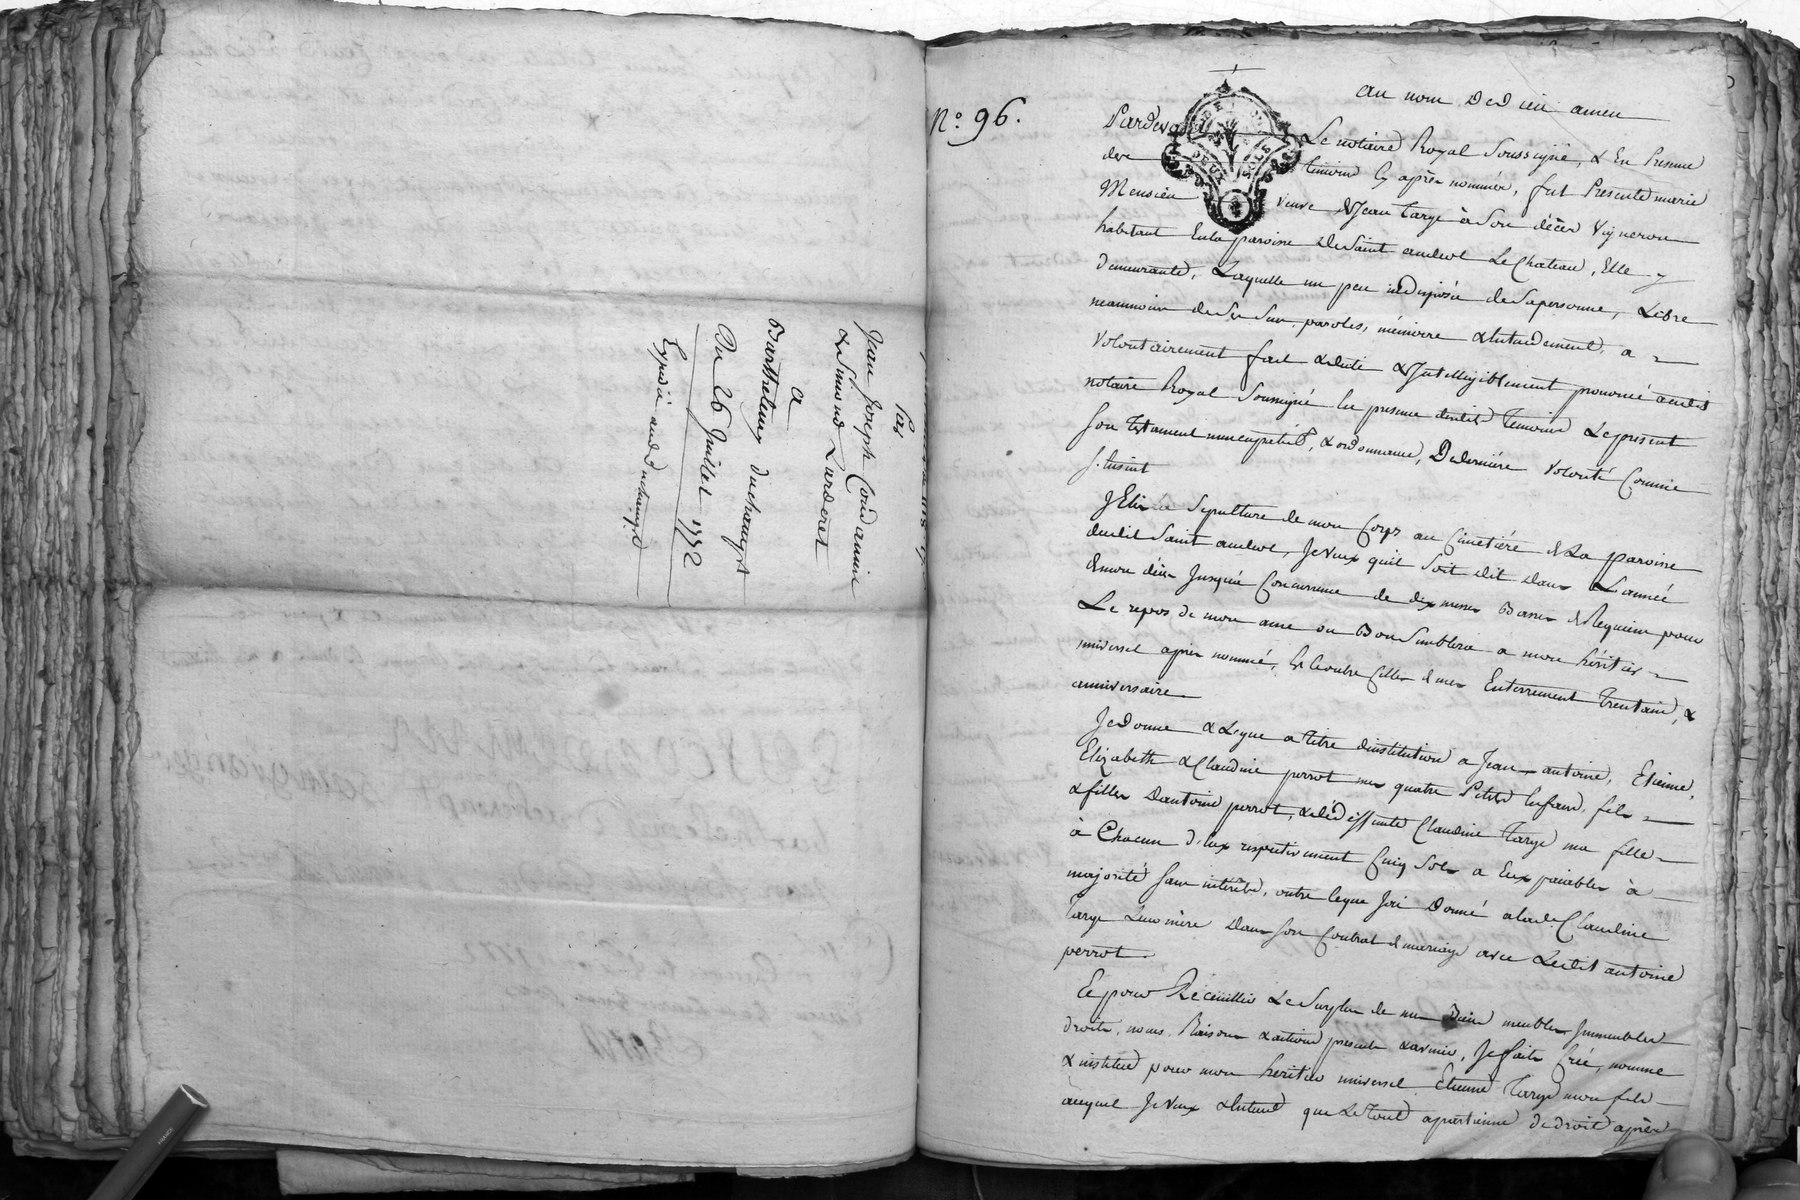 Par
Jean Joseph Condamine
& Simond Larderet
a
Barthelemy duchampt
Du 26 Juillet 1772
Expedié aud. duchampt
N.º 96.
au nom de dieu amen
Pardevant Le notaire Royal Soussigné, & En Presence
des témoins cy après nommés, fut Presente marie
veuve de Jean Targe à Son décès Vigneron
habitant En la paroisse de Saint andeol Le Chateau, Elle y
demeurante, Laquelle un peu indisposée de Sa personne, Libre
neanmoins de Ses Sens, paroles, mémoire & Entendement, a
volontairement fait & dicté & Intelligiblement prononcé audit
notaire Royal Soussigné En presence desdits Temoins Le present
Son Testament nuncupatif, & ordonnance, De derniére volonté Comme
S'ensuit
J'Elis la Sepulture de mon Corps au Cimetiére de La paroisse
dudit Saint andeol, Je veux qu'il Soit dit Dans L'année
de mon décès Jusqu'à Concurrence de dix messes Basses de Requiem pour
Le repos de mon ame ou Bon Semblera a mon héritier
universel après nommé, Et Ce outre Celles de mes Enterrement Trentain, &
anniversaire
Je donne & Legue a titre d'institution a Jean antoine, Etienne,
Elizabeth & Claudine perrot mes quatre Petits Enfans, fils
& filles D'antoine perrot, & de deffunte Claudine Targe ma fille
à Chacun d'Eux respectivement Cinq Sols a Eux paiables à
majorité Sans intérêts, outre Ce que J'ai Donné a lad.e Claudine
Targe Leur mère Dans Son Contrat de mariage avec Ledit antoine
perrot
Et pour Récéuillir Le Surplus de mes Biens meubles Immeubles
droits, noms, Raisons & actions presents & avenir, Je fais Créé, nomme
& institue pour mon heritier universel Etienne Targe mon fils
auquel Je veux & Entend que Le Tout apartienne de droit après